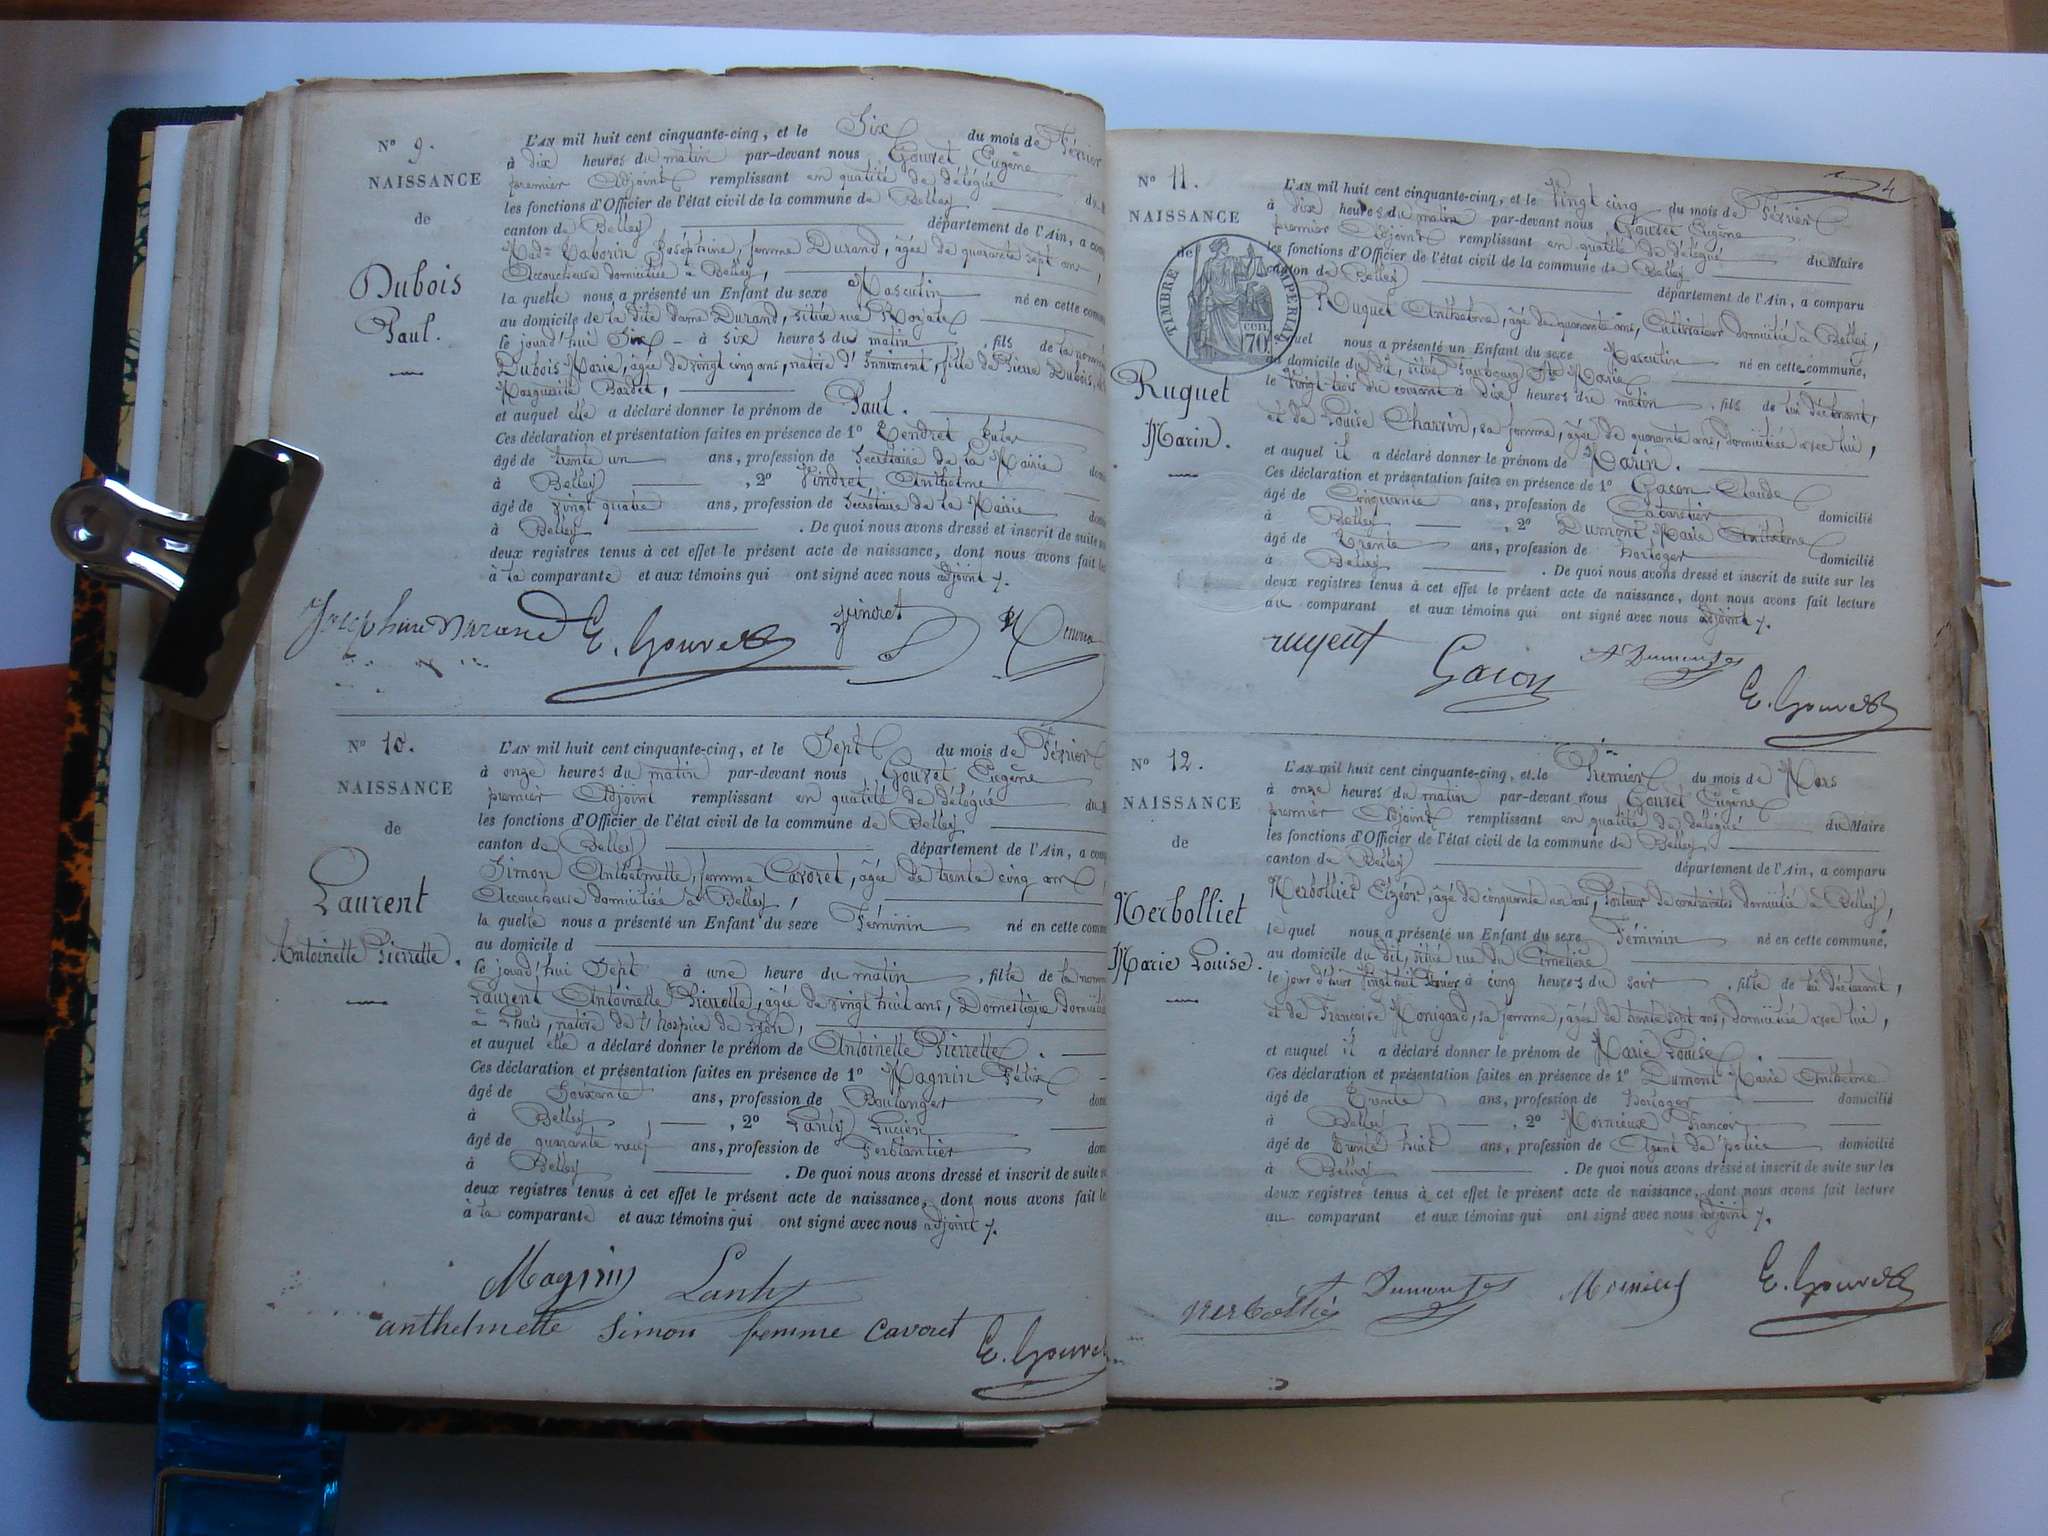 N° 9.
NAISSANCE
de
Dubois
Paul.
L'AN mil huit cent cinquante-cinq, et le Six du mois de Février
à dix heures du matin par-devant nous Gouvet Eugène
premier Adjoint remplissant en qualité de délégué du
les fonctions d'Officier de l'état civil de la commune de Belley
canton de Belley département de l'Ain, a
Joséphine, femme Durand, âgée de quarante sept ans,
Accoucheuse domiciliée à Belley,
la quelle nous a présenté un Enfant du sexe Masculin né en cette
au domicile de la dite dame Durand, située rue
le jourd'hui Six à six heures du matin, fils de la
Dubois Marie, agée de vingt cinq ans, native d'Innimont, fille de Pierre Dubois,
Marguerite
et auquel elle a déclaré donner le prénom de Paul.
Ces déclaration et présentation faites en présence de 1°
âgé de trente un ans, profession de Secrétaire de la Mairie
à Belley, 2° Anthelme
âgé de vingt quatre ans, profession de Secrétaire de la Mairie
à Belley. De quoi nous avons dressé et inscrit de suite
deux registres tenus à cet effet le présent acte de naissance, dont nous avons fait
à la comparante et aux témoins qui ont signé avec nous adjoint
Josephine Durand E. Gouvet
N° 10.
NAISSANCE
de
Laurent
Antoinette Pierrette.
L'AN mil huit cent cinquante-cinq, et le Sept du mois de Février
à onze heures du matin par-devant nous Gouvet Eugène
premier Adjoint remplissant en qualité de délégué du
les fonctions d'Officier de l'état civil de la commune de Belley
canton de Belley département de l'Ain, a
Simon Anthelmette, femme Cavoret, âgée de trente cinq ans
Accoucheuse domiciliée à Belley,
la quelle nous a présenté un Enfant du sexe Féminin né en cette
au domicile d
le jourd'hui Sept à une heure du matin, fille de la
Laurent Antoinette Pierrette, âgée de vingt huit ans, Domestique
à Lhuis, native de l'hospice de Lyon,
et auquel elle a déclaré donner le prénom de Antoinette Pierrette.
Ces déclaration et présentation faites en présence de 1° Magnin Félix
âgé de Soixante ans, profession de Boulanger
à Belley, 2° Lanty Lucien
âgé de quarante neuf ans, profession de Ferblantier
à Belley. De quoi nous avons dressé et inscrit de suite
deux registres tenus à cet effet le présent acte de naissance, dont nous avons fait
à la comparante et aux témoins qui ont signé avec nous adjoint
Magnin Lanty
anthelmette Simon femme Cavoret
E. Gouvet
4
N° 11.
NAISSANCE
de
TIMBRE IMPERIAL
70 cen.
Ruquet
Marin.
L'AN mil huit cent cinquante-cinq, et le Vingt cinq du mois de Février
à dix heures du matin par-devant nous Gouvet Eugène
premier Adjoint remplissant en qualité de délégué du Maire
les fonctions d'Officier de l'état civil de la commune de Belley
canton de Belley département de l'Ain, a comparu
Ruquet Anthelme, âgé de quarante ans, Cultivateur domicilié à Belley,
lequel nous a présenté un Enfant du sexe Masculin né en cette commune,
au domicile du dit, situé Faubourg Ste Marie
le Vingt trois du courant à dix heures du matin, fils de lui déclarant,
et de Louise Charvin, sa femme, âgée de quarante ans, domiciliée avec lui,
et auquel il a déclaré donner le prénom de Marin.
Ces déclaration et présentation faites en présence de 1° Gacon Claude
âgé de Cinquante ans, profession de Cabaretier domicilié
à Belley, 2° Dumont, Marie Anthelme
âgé de Trente ans, profession de horloger domicilié
à Belley. De quoi nous avons dressé et inscrit de suite sur les
deux registres tenus à cet effet le présent acte de naissance, dont nous avons fait lecture
au comparant et aux témoins qui ont signé avec nous adjoint
Gacon
E. Gouvet
N° 12.
NAISSANCE
de
Merbolliet
Marie Louise.
L'AN mil huit cent cinquante-cinq, et le Premier du mois de Mars
à onze heures du matin par-devant nous Gouvet Eugène
premier Adjoint remplissant en qualité de délégué du Maire
les fonctions d'Officier de l'état civil de la commune de Belley,
canton de Belley département de l'Ain, a comparu
Merbolliet Elzéor, âgé de cinquante un ans, Porteur de contraintes domicilié à Belley,
le quel nous a présenté un Enfant du sexe Féminin né en cette commune,
au domicile du dit, situé rue du Cimetière
le jour d'hier Vingt huit Février à cinq heures du soir, fille de lui déclarant,
et de Francoise Monigard, sa femme, âgée de trente sept ans, domiciliée avec lui,
et auquel il a déclaré donner le prénom de Marie Louise.
Ces déclaration et présentation faites en présence de 1° Dumont Marie Anthelme
âgé de Trente ans, profession de horloger domicilié
à Belley, 2° Mornieux Francois
âgé de Trente huit ans, profession de Agent de police domicilié
à Belley. De quoi nous avons dressé et inscrit de suite sur les
deux registres tenus à cet effet le présent acte de naissance, dont nous avons fait lecture
au comparant et aux témoins qui ont signé avec nous adjoint
E. Gouvet